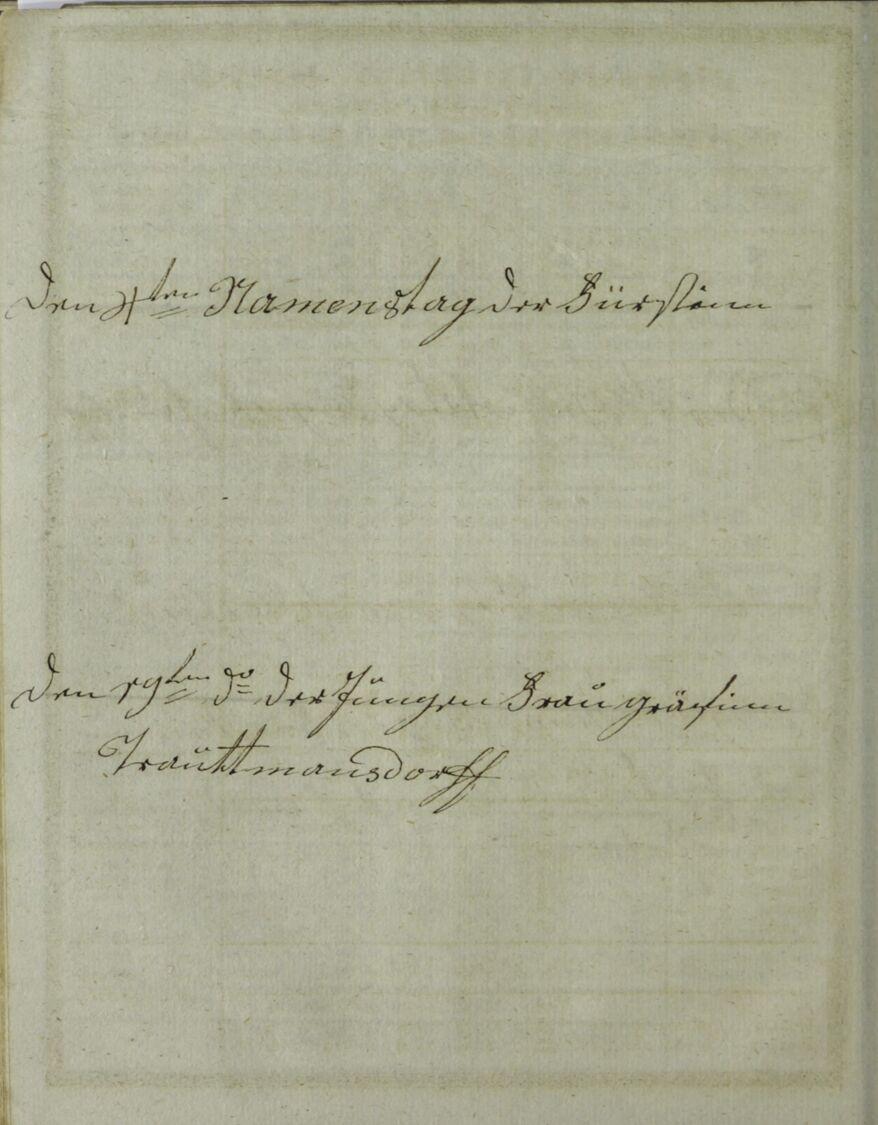 Den 4ten Namenstag der Fürstinn
Den 19ten do der Jungen Frau gräfinn
Trauttmansdorff